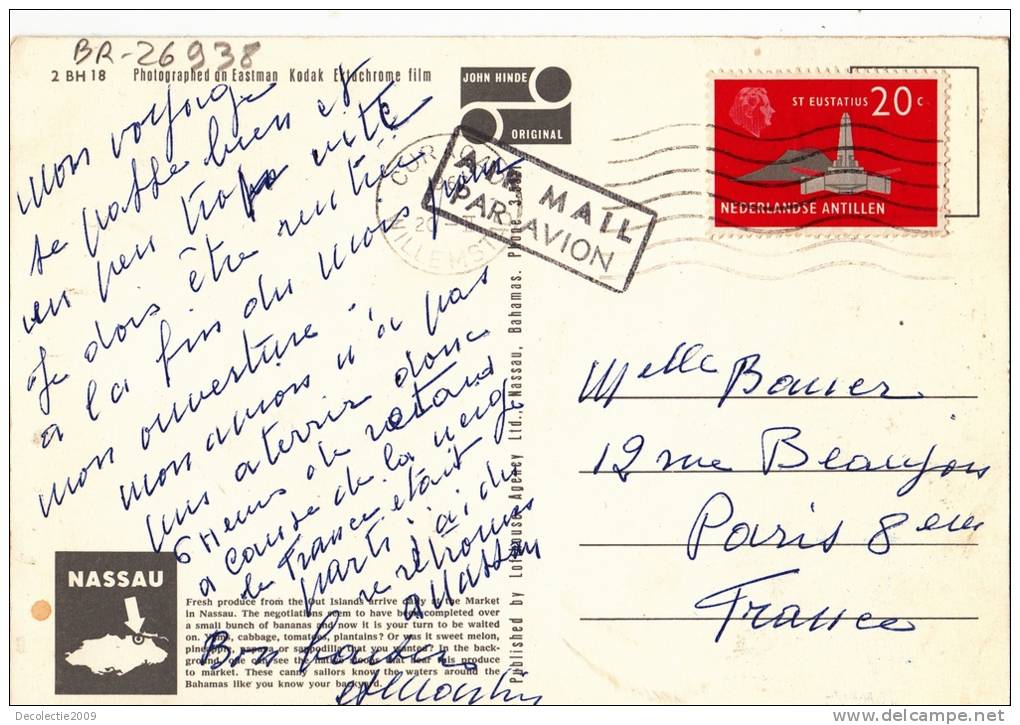 BR-26938
2 BH 18 Photographed on Eastman Kodak Ektachrome film
JOHN HINDE
ORIGINAL
ST EUSTATIUS 20 C
NEDERLANDSE ANTILLEN
CURAÇAO
WILLEMSTAD
AIR MAIL
PAR AVION
Mon voyage
se passe bien et
un peu trop vite
Je dois être rentrée
à la fin du mois pour
mon ouverture
mon avion n'a pas
pus aterrir donc
6 Heures de retard
a cause de la neige
de France était
parti j'ai du
se retrouver
a Nassau
Bons baisers
Melle Bauer
12 rue Beaujon
Paris 8eme
France
Published by Lofthouse Agency Ltd., Nassau, Bahamas. Phone
NASSAU
Fresh produce from the Out Islands arrive daily at the Market
in Nassau. The negotiations seem to have been completed over
a small bunch of bananas and now it is your turn to be waited
on. Yams, cabbage, tomatoes, plantains? Or was it sweet melon,
pineapple, papaya or sappodilla that you wanted? In the back-
ground, one can see the native sloops that bear this produce
to market. These canny sailors know the waters around the
Bahamas like you know your backyard.
Decolectie2009
www.delcampe.net